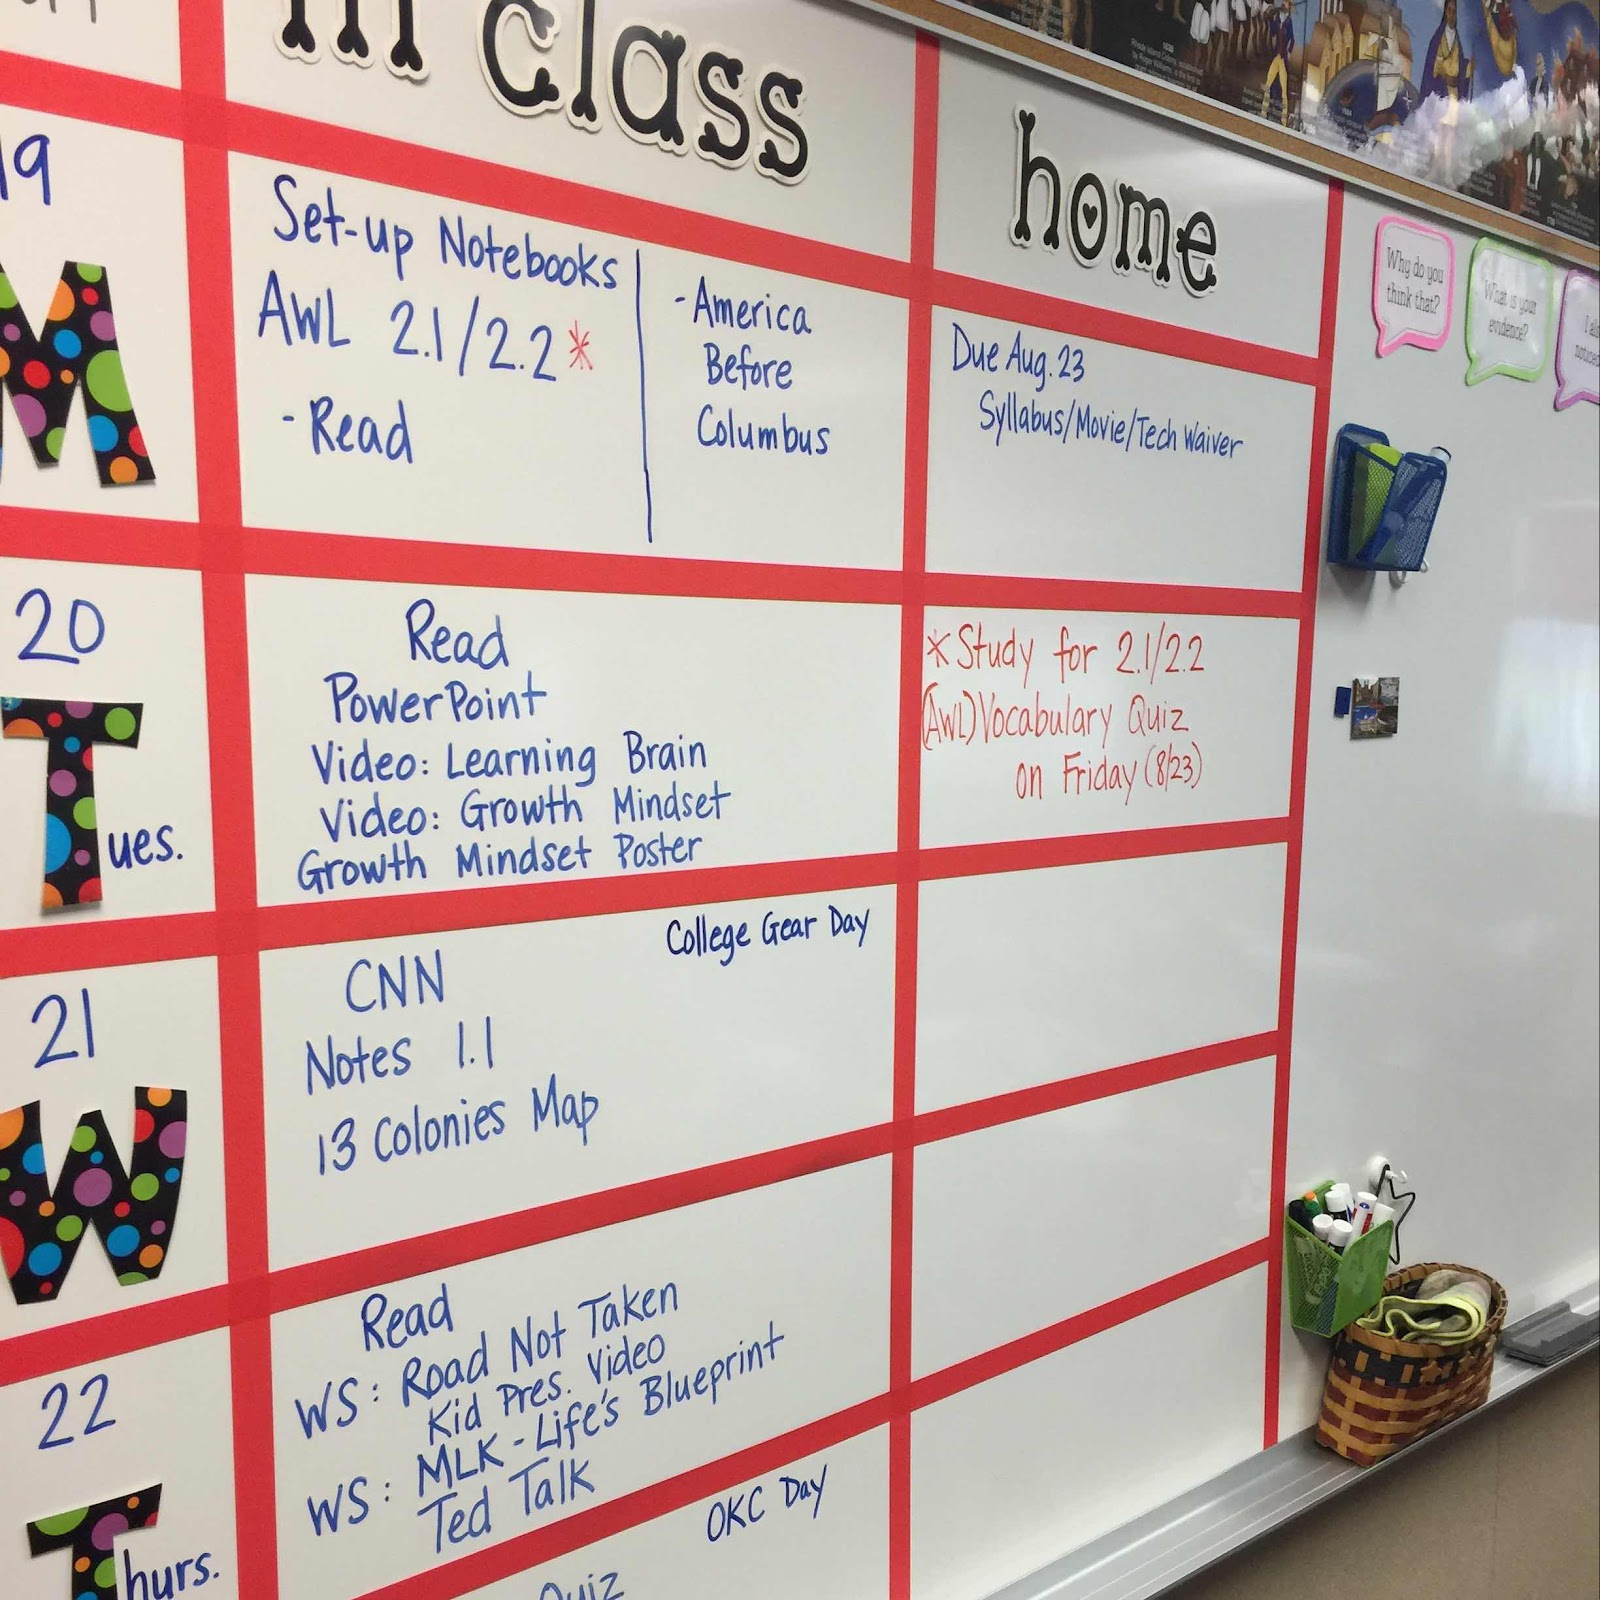 in class
home
19
M
Set-up Notebooks
AWL 2.1/2.2*
- Read
- America
Before
Columbus
Due Aug. 23
Syllabus/Movie/Tech Waiver
20
Tues.
Read
PowerPoint
Video: Learning Brain
Video: Growth Mindset
Growth Mindset Poster
*Study for 2.1/2.2
(AWL) Vocabulary Quiz
on Friday (8/23)
21
W
College Gear Day
CNN
Notes 1.1
13 Colonies Map
22
Thurs.
Read
WS: Road Not Taken
Kid Pres. Video
WS: MLK - Life's Blueprint
Ted Talk
OKC Day
Quiz
Why do you
think that?
What is your
evidence?
I